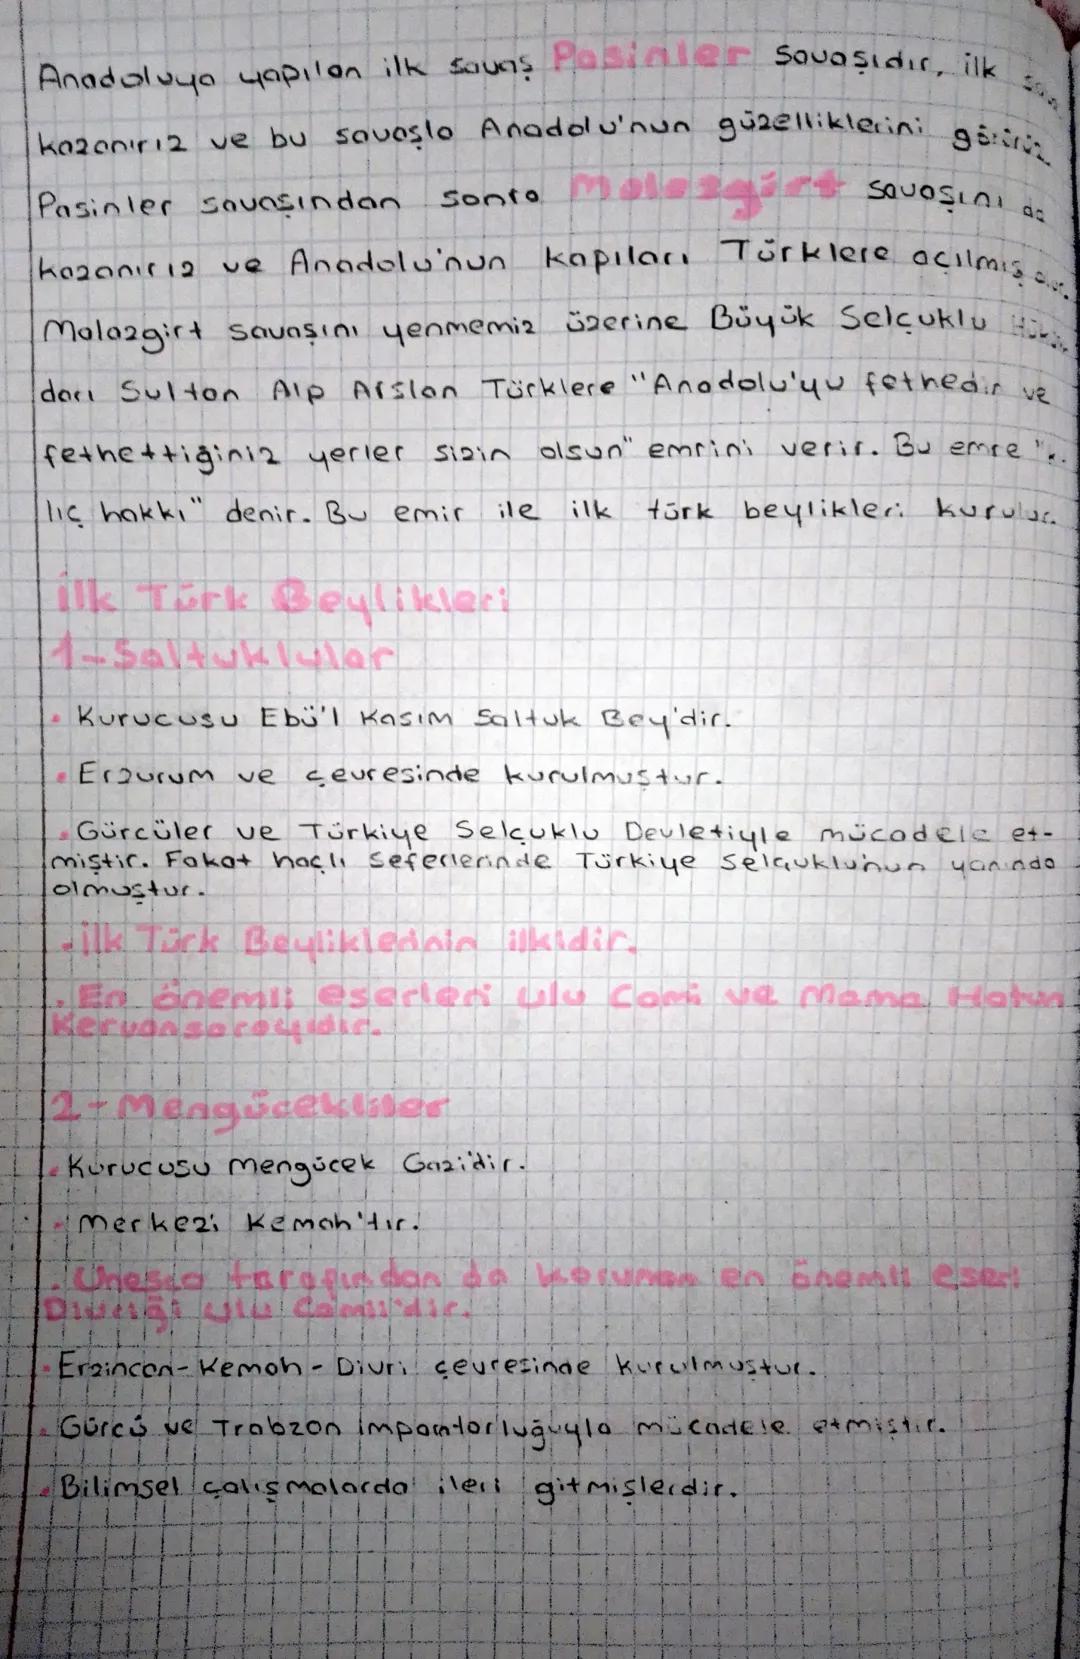 Anadoluya yapılan ilk savaş Pasinler savaşıdır, ilk
kazanırız ve bu savaşla Anadolu'nun güzelliklerini görürüz.
Pasinler savaşından sonra Malazgirt savaşını da
kazanırız ve Anadolu'nun kapıları Türklere açılmış olur.
Malazgirt savaşını yenmemiz üzerine Büyük Selçuklu
darı Sultan Alp Arslan Türklere "Anadolu'yu fethedin ve
fethettiğiniz yerler sizin olsun" emrini verir. Bu emre
lıç hakkı" denir. Bu emir ile ilk türk beylikleri kurulur.
İlk Türk Beylikleri
1-Saltuklular
• Kurucusu Ebü'l Kasım Saltuk Bey'dir.
• Erzurum ve çevresinde kurulmuştur.
• Gürcüler ve Türkiye Selçuklu Devletiyle mücadele et-
miştir. Fakat haçlı seferlerinde Türkiye Selçuklunun yanında
olmuştur.
• İlk Türk Beyliklerinin ilkidir.
• En önemli eserleri Ulu Cami ve Mama Hatun
Kervansarayıdır.
2-Mengücekliler
• Kurucusu Mengücek Gazi'dir.
• Merkezi Kemah'tır.
• Unesco tarafından da korunan en önemli eseri
Divriği Ulu Camii'dir.
• Erzincan-Kemah-Divri çevresinde kurulmuştur.
• Gürcü ve Trabzon İmparatorluğuyla mücadele etmiştir.
• Bilimsel çalışmalarda ileri gitmişlerdir.